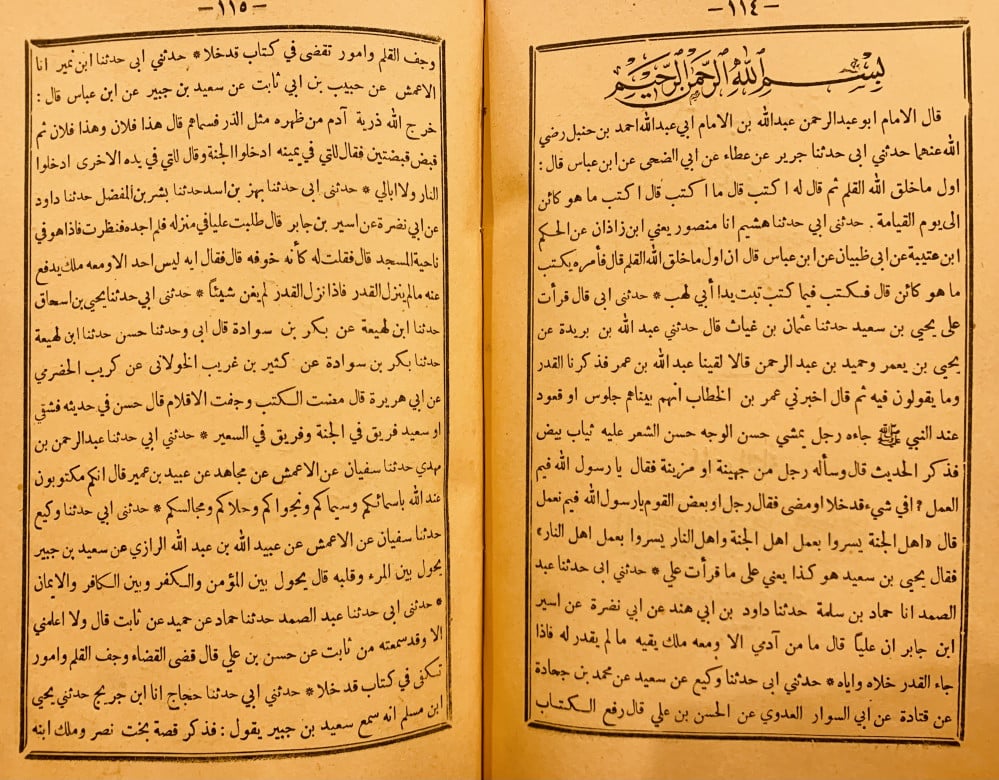 — ١١٤ —
بسم الله الرحمن الرحيم
قال الامام ابو عبد الرحمن عبدالله بن الامام ابي عبدالله احمد بن حنبل رضي
الله عنهما حدثني ابى حدثنا جرير عن عطاء عن ابي الضحى عن ابن عباس قال :
اول ماخلق الله القلم ثم قال له اكتب قال ما اكتب قال اكتب ما هو كائن
الى يوم القيامة . حدثنى ابي حدثنا هشيم انا منصور يعني ابن زاذان عن الحكم
ابن عتيبة عن ابى ظبيان عن ابن عباس قال ان اول ماخلق الله القلم قال فأمره يكتب
ما هو كائن قال فكتب فيما كتب تبت يدا أبي لهب * حدثنى ابى قال قرأت
على يحيى بن سعيد حدثنا عثمان بن غياث قال حدثني عبد الله بن بريدة عن
يحيى بن يعمر وحميد بن عبد الرحمن قالا لقينا عبدالله بن عمر فذكرنا القدر
وما يقولون فيه ثم قال اخبرني عمر بن الخطاب انهم بيناهم جلوس او قعود
عند النبي ﷺ جاءه رجل يمشي حسن الوجه حسن الشعر عليه ثياب بيض
فذكر الحديث قال وسأله رجل من جهينة او مزينة فقال يا رسول الله فيم
العمل ؟ افي شيء قد خلا او مضى فقال رجل او بعض القوم يارسول الله فيم نعمل
قال «اهل الجنة يسروا بعمل اهل الجنة واهل النار يسروا بعمل اهل النار»
فقال يحيى بن سعيد هو كذا يعني على ما قرأت علي * حدثني ابى حدثنا عبد
الصمد انا حماد بن سلمة حدثنا داود بن ابي هند عن ابي نضرة عن اسير
ابن جابر ان علياً قال ما من آدمي الا ومعه ملك يقيه مالم يقدر له فاذا
جاء القدر خلاه واياه * حدثني ابى حدثنا وكيع عن سعيد عن محمد بن جحادة
عن قتادة عن ابي السوار العدوي عن الحسن بن علي قال رفع الكتاب
— ١١٥ —
وجف القلم وامور تقضى في كتاب قد خلا * حدثني ابى حدثنا ابن نمير انا
الاعمش عن حبيب بن ابي ثابت عن سعيد بن جبير عن ابن عباس قال :
خرج الله ذرية آدم من ظهره مثل الذر فسماهم قال هذا فلان وهذا فلان ثم
قبض قبضتين فقال للتي في يمينه ادخلوا الجنة وقال للتي في يده الاخرى ادخلوا
النار ولا ابالي * حدثنى ابى حدثنا بهز بن اسد حدثنا بشر بن المفضل حدثنا داود
عن ابي نضرة عن اسير بن جابر قال طلبت عليا في منزله فلم اجده فنظرت فاذا هو في
ناحية المسجد قال فقلت له كأنه خوفه قال فقال ايه ليس احد الا ومعه ملك يدفع
عنه مالم ينزل القدر فاذا نزل القدر لم يغن شيئاً * حدثني ابي حدثنا يحيى بن اسحاق
حدثنا ابن لهيعة عن بكر بن سوادة قال ابى وحدثنا حسن حدثنا ابن لهيعة
حدثنا بكر بن سوادة عن كثير بن غريب الخولانى عن كريب الحضري
عن ابي هريرة قال مضت الكتب وجفت الاقلام قال حسن في حديثه فشتي
او سعيد فريق في الجنة وفريق في السعير * حدثني ابي حدثنا عبدالرحمن بن
مهدي حدثنا سفيان عن الاعمش عن مجاهد عن عبيد بن عمير قال انكم مكتوبون
عند الله باسمائكم وسيماكم ونجواكم وحلاكم ومجالسكم * حدثنى ابي حدثنا وكيع
حدثنا سفيان عن الاعمش عن عبيد الله بن عبد الله الرازي عن سعيد بن جبير
يحول بين المرء وقلبه قال يحول بين المؤمن والكفر وبين الكافر والايمان
* حدثنى ابى حدثنا عبد الصمد حدثنا حماد عن حميد عن ثابت قال ولا اعلمني
الا وقد سمعته من ثابت عن حسن بن علي قال قضى القضاء وجف القلم وامور
تكفى في كتاب قد خلا * حدثني ابي حدثنا حجاج انا ابن جريج حدثني يحيى
ابن مسلم انه سمع سعيد بن جبير يقول : فذكر قصة بخت نصر وملك ابنه